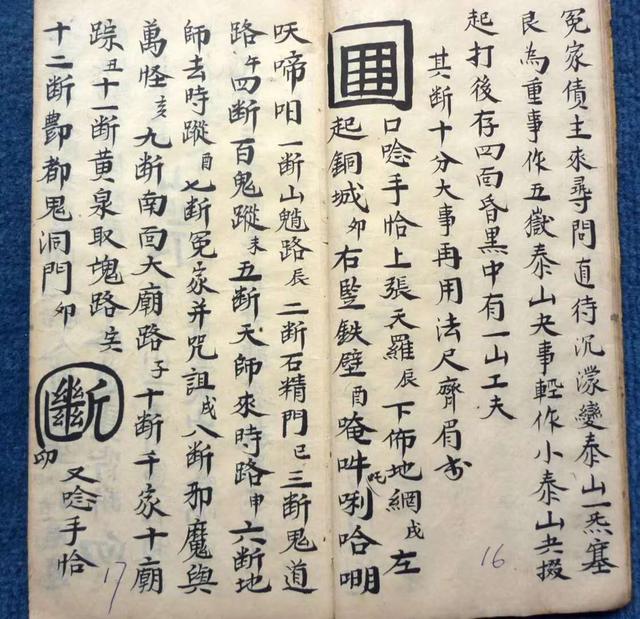 冤家債主來尋問直待沉濛變泰山一炁塞
良為重事作五嶽泰山夬事輕作小泰山夬掇
起打後存四面昏黑中有一山工夫
其断十分大事再用法尺齊眉
口唸手恰上張天羅辰下佈地網戌左
起銅城卯右竪鉄壁酉唵吽吒唎哈
16
㕭啼呾一断山魈路辰二断石精門巳三断鬼道
路午四断百鬼蹤未五断天師來時路申六断地
師去時蹤酉七断冤家并咒詛戌八断邪魔與
萬怪亥九断南面大廟路子十断千家十廟
踪丑十一断黄泉取塊路
十二断酆都鬼洞門卯
斷
又唸手恰
17